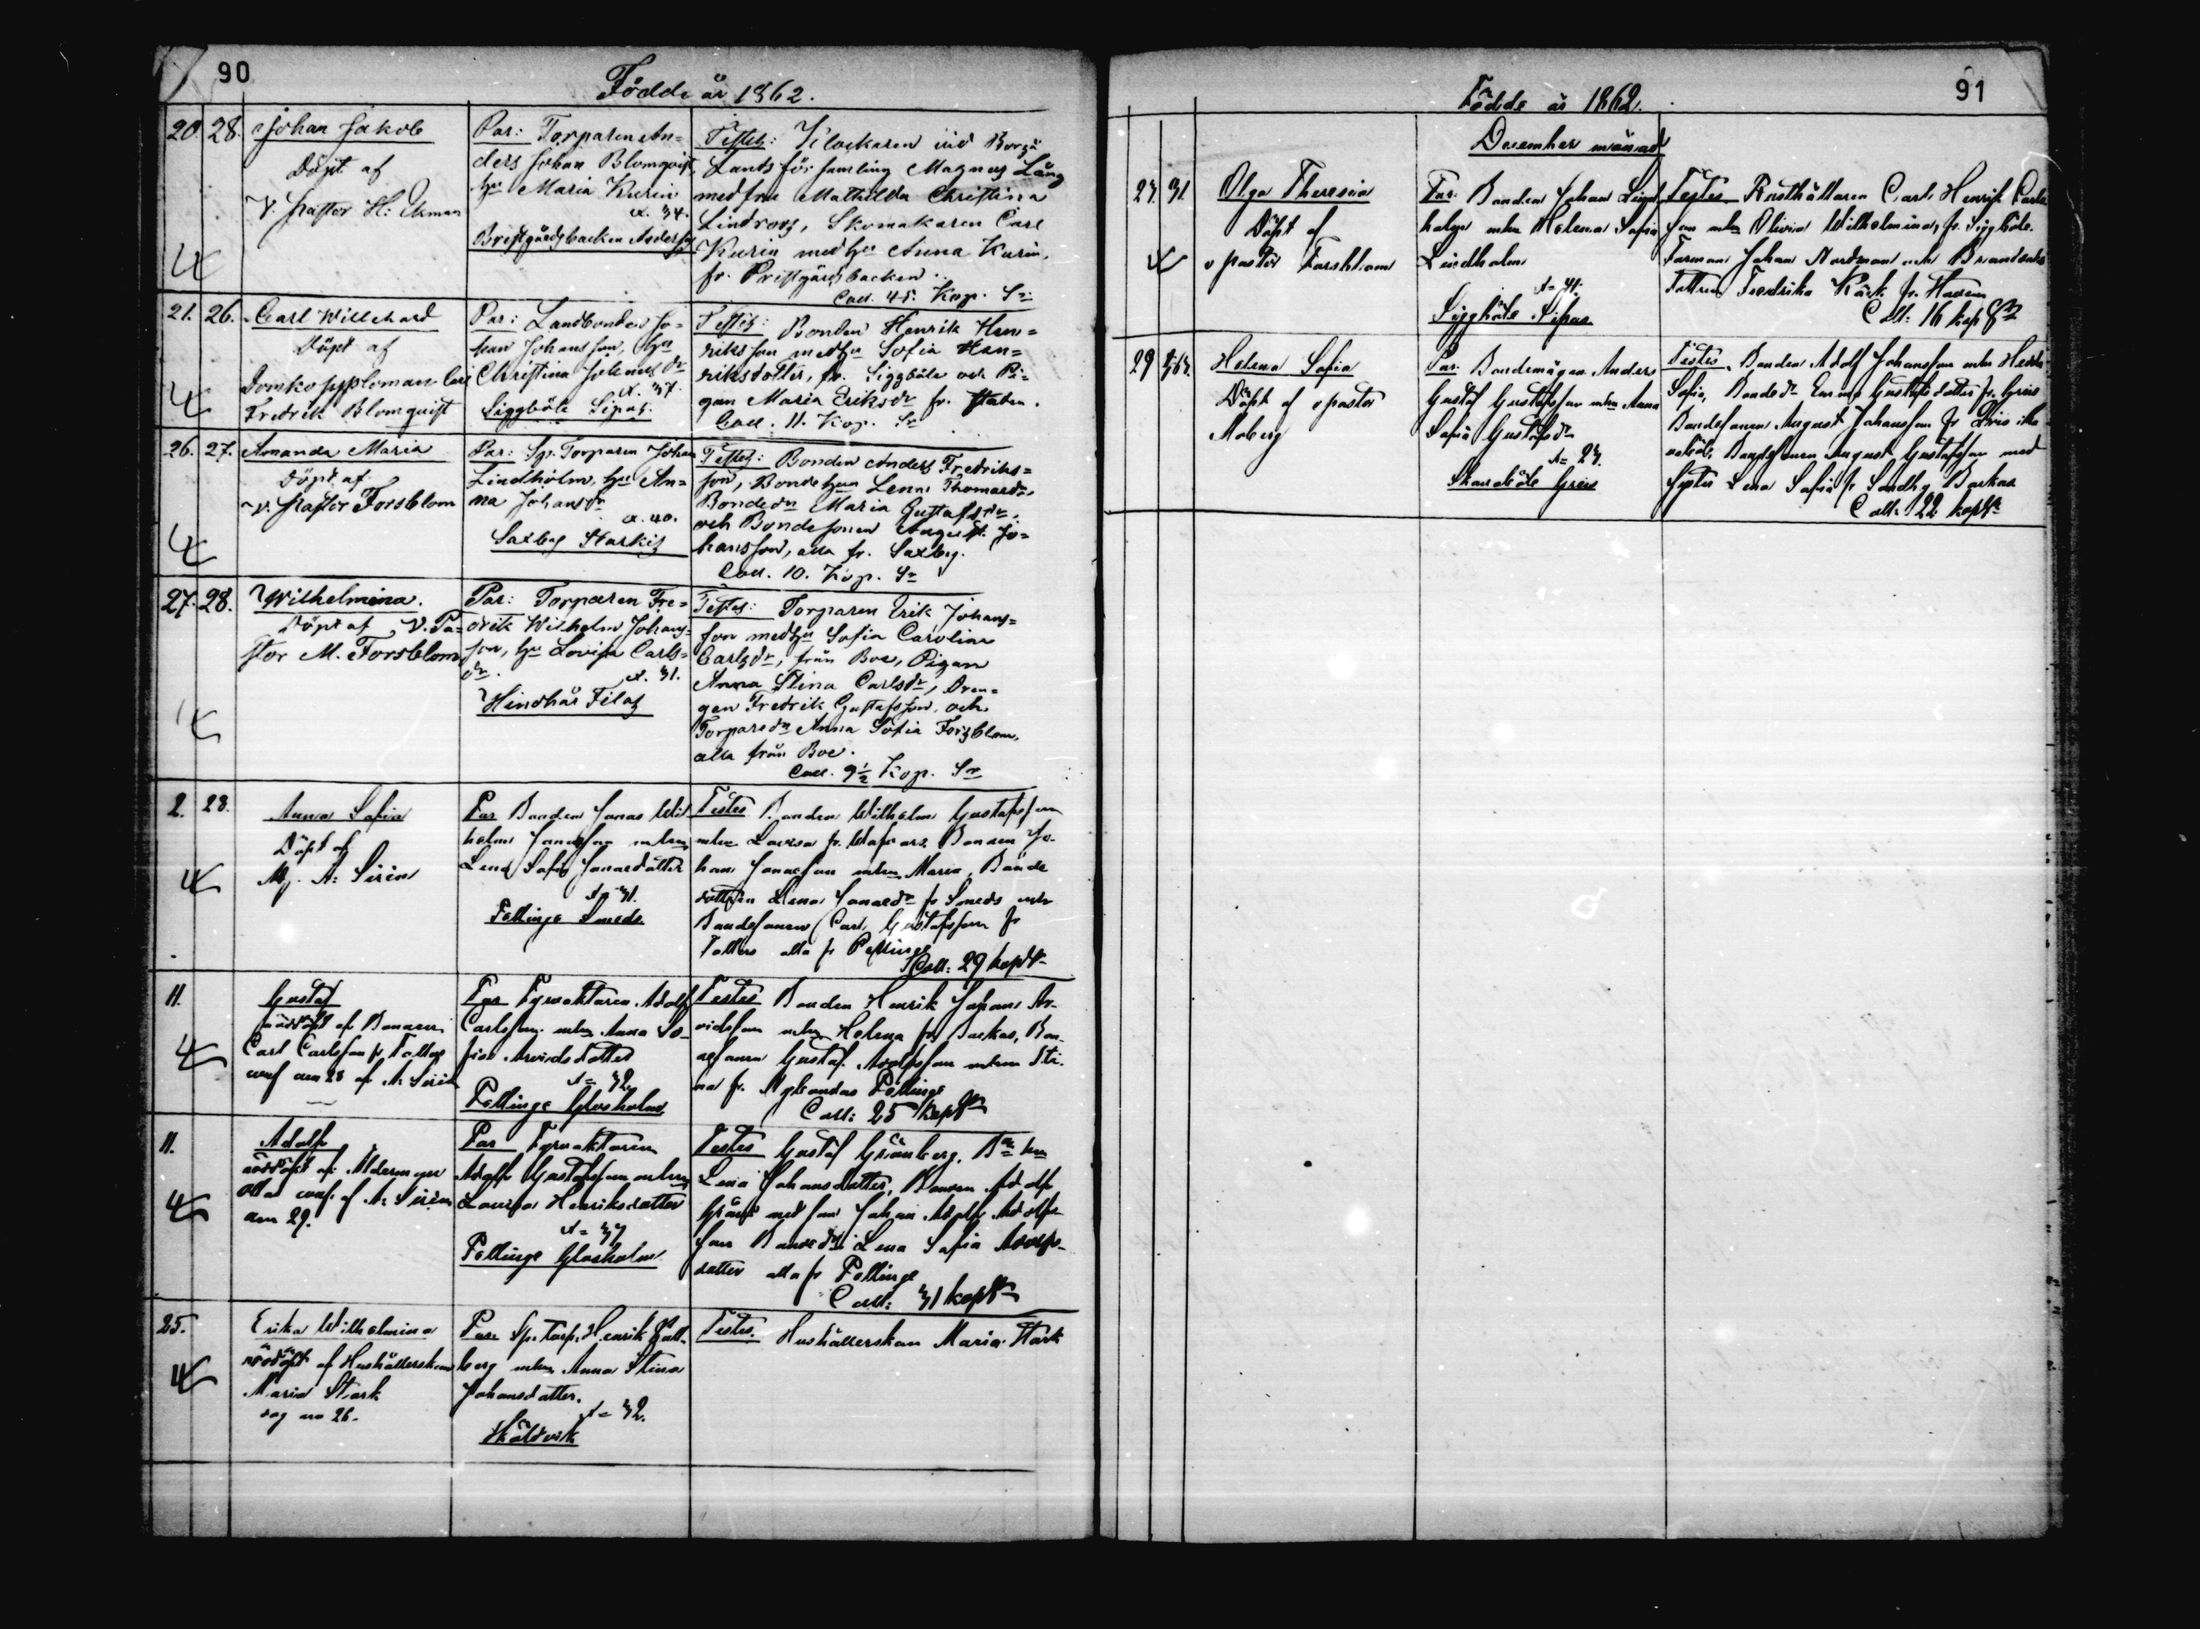 90
Födde år 1862.
20. 28. Johan Jakob
Döpt af
v. pastor H. Ekman
Par: Torparen An=
ders Johan Blomqvist,
hu Maria Kurin
æ. 34.
Testes: Klockaren vid Borgå
Lands församling Magnus Lång
med fru Mathilda Christina
Lindroos, Skomakaren Carl
Kurin med hu Anna Kurin,
fr. Prestgårdsbacken.
Coll. 45. Kop. Sr
21. 26. Carl Willehard
Döpt af
Fredrik Blomqvist
Par: Landbonden Jo=
han Johansson, hu
Christina
æ. 37.
Siggböle Sipas.
Testes: Bonden Henrik Hen=
riksson med hu Sofia Hen=
riksdotter, fr. Siggböle och Pi=
gan Maria Eriksdr fr. staden.
Coll. 11. Kop. Sr
26. 27. Amanda Maria
Döpt af
v. pastor Forsblom
Par: Sp. Torparen Johan
Lindholm, hu An=
na Johansdr
æ. 40.
Saxby Starkis
Testes: Bonden Anders Fredriks=
son, Bondehun Lena Thomasdr,
Bondedn Maria Gustafsdr,
och Bondesonen August Jo=
hansson, alla fr. Saxby.
Coll. 10. Kop. Sr
27. 28. Wilhelmina.
Döpt af V. Pa=
stor M. Forsblom
Par: Torparen Fre=
drik Wilhelm Johans=
son, hu Lovisa Carls=
dr.
æ. 31.
Hindhår Filas
Testes: Torparen Erik Johans=
son med hu Sofia Carolina
Carlsdr, från Boe, Pigan
Anna Stina Carlsdr, Dren=
gen Fredrik Gustafsson, och
Torparedn Anna Sofia Forsblom,
alla från Boe.
Coll. 9½ Kop. Sr
2. 28. Anna Sofia
Döpt af
Mg. A: Sirén
Par Bonden Jonas Wil
helm Jonasson mhu
Lena Sofia Jonasdotter
æ= 31.
Pellinge Smeds
Testes Bonden Wilhelm Gustafsson
mhu Lovisa fr. Bonden Jo-
han Jonasson mhu Maria, Bonde
dottren Lena Jonasdr fr Smeds och
Bondesonen Carl Gustafsson fr
alla fr Pellinge
Coll: 29 kop Sr
11. Gustaf
nöddöpt af Bonden
Carl Carlsson fr
conf den 28 af A: Sirén
Par Fyrvaktaren Adolf
Carlsson mhu Anna So-
fia Arvidsdotter
æ= 32
Pellinge Glosholm
Testes Bonden Henrik Johan Ar-
vidsson mhu Helena fr Backas, Bon-
desonen Gustaf Adolfsson mhu Sti-
na fr. Nylandas Pellinge
Coll: 25 kop Sr
11. Adolf
nöddöpt af Åldermyn
conf. af A: Sirén
den 29.
Par Fyrvaktaren
Adolf Gustafsson mhu
Lovisa Henriksdotter
æ= 37
Pellinge Glosholm
Testes Gustaf Grönberg,
Lena Johansdotter, Bonden Adolf
med son Johan Adolf Adolfs-
son Bondedn Lena Sofia Adolfs-
dotter alla fr Pellinge
Coll: 31 kop Sr
25. Erika Wilhelmina
nöddöpt af Hushållerskan
Maria Stark
dag den 26.
Par: Sp. Torp. Henrik
berg mhu Anna Stina
Johansdotter.
æ= 32.
Sköldvik
Testes. Hushållerskan Maria Stark
91
Födde år 1862.
December månad
31. Olga Theresia
Döpt af
v pastor Forsblom
Par. Bonden Johan
mhu Helena Sofia
Lindholm
æ= 41.
Siggböle Sipas
Testes Rusthållaren Carl Henrik Carls
son mhu Olivia Wilhelmina, fr. Siggböle.
Farman Johan Nordman och Bonde
dottren Fredrika Käck fr. Haven
Coll: 16 kop Sr
29 Helena Sofia
Döpt af v pastor
Moberg
Par. Bondemågen Anders
Gustaf Gustafsson mhu Anna
Sofia Gustafsdr
æ= 23.
Skavaböle Gries
Testes. Bonden Adolf Johansson mhu Hedv.
Sofia, Bondedr Emma Gustafsdotter fr. Gries
Bondesonen August Johansson fr
Bondesonen August Gustafsson med
syster Lena Sofia fr Sondby Backas
Coll: 22 kop Sr